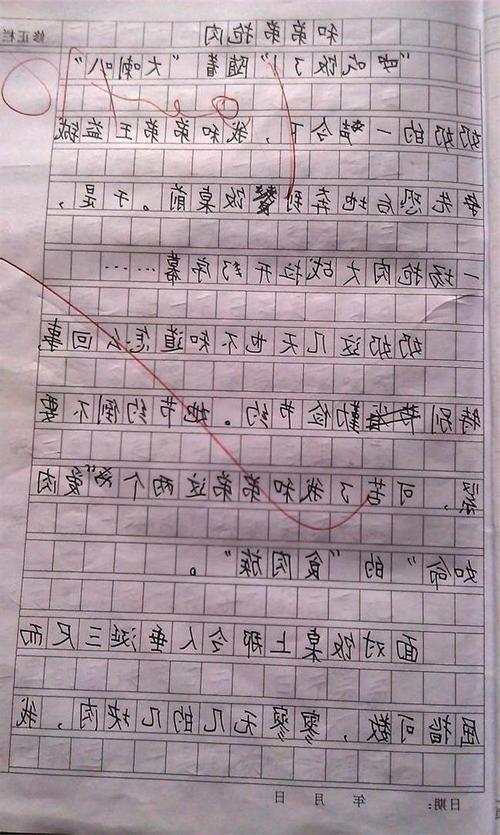 修正栏
和弟弟抢肉
吃饭了!”随着“大喇叭”
奶奶的一声令下,我和弟弟王益铖
争先恐后地奔到饭桌前。于是,
一场抢肉大战拉开了序幕……
奶奶这几天也不知道怎么回事,
特别勤俭节约。她节约倒不要
紧,可苦了我和弟弟这两个“爱肉
如命”的“食肉族”。
面对饭桌上那令人垂涎三尺而
屈指可数,寥寥无几的几块肉,我
日期: 年 月 日